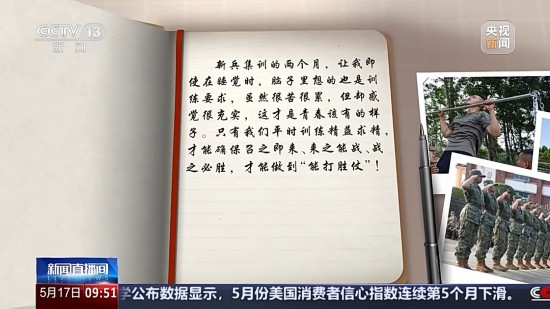 CCTV 13
新闻
央视
新闻
新兵集训的两个月，让我即
使在睡觉时，脑子里想的也是训
练要求，虽然很苦很累，但却感
觉很充实，这才是青春该有的样
子。只有我们平时训练精益求精，
才能确保召之即来、来之能战、战
之必胜，才能做到“能打胜仗”！
新闻直播间
5月17日 09:51
学公布数据显示，5月份美国消费者信心指数连续第5个月下滑。